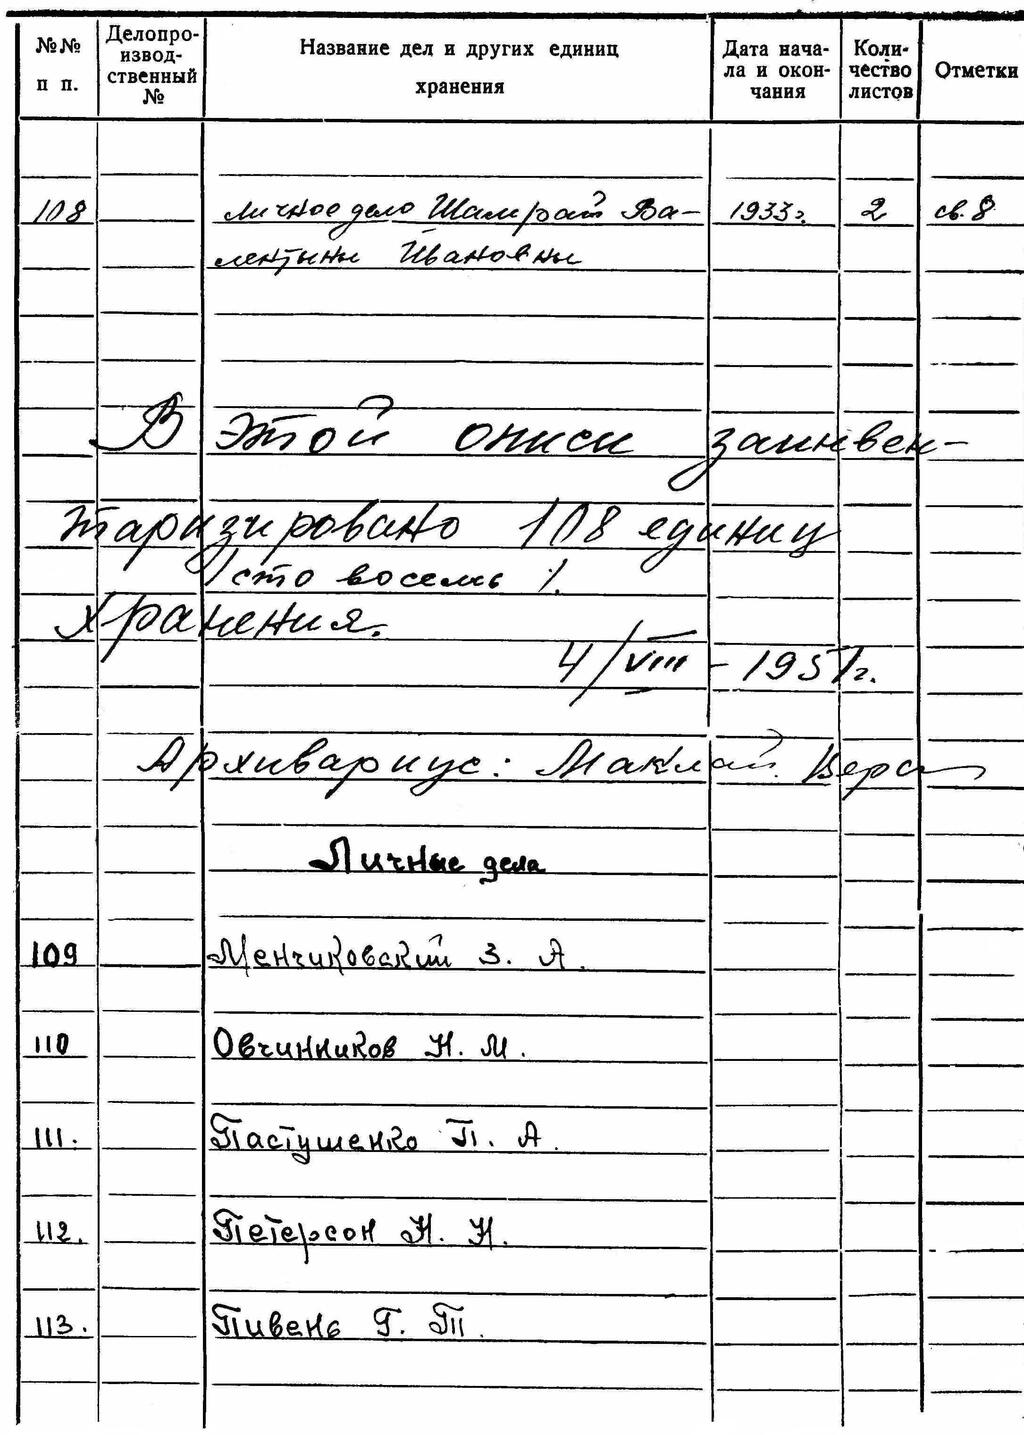 №№ п п.
Делопро-
извод-
ственный
№
Название дел и других единиц
хранения
Дата нача-
ла и окон-
чания
Коли-
чество
листов
Отметки
108 личное дело Шамрай Ва- 1933г. 2 св. 8
лентины Ивановны
В этой описи заинвен-
таризировано 108 единиц
/сто восемь/.
хранения.
4/VIII - 1951г.
Архивариус: Маклай. Вера
Личные дела
109 Менчиковский З. А.
110 Овчинников Н. М.
111. Пастушенко П. А.
112. Петерсон Н. Н.
113. Пивень Г. П.